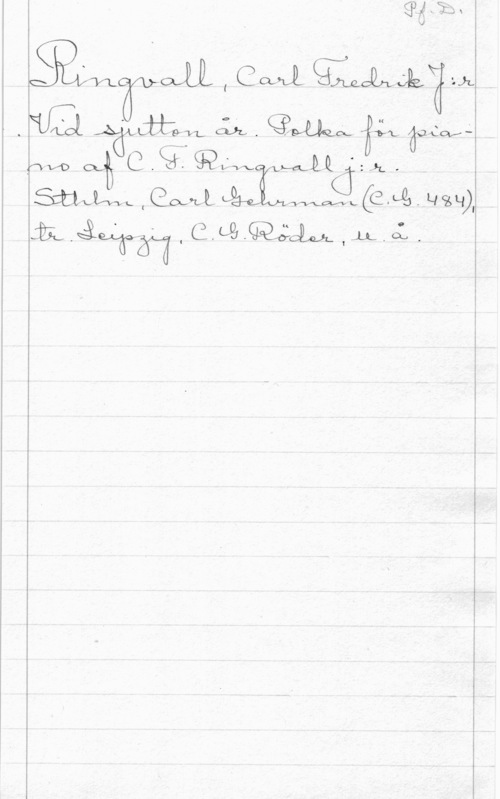 Pf. D.
Ringvall, Carl Fredrik J:r
Vid sjutton år. Polka för pia-
no af C. F. Ringvall j:r.
Sthlm, Carl Gehrman (C.G. 484),
tr. Leipzig, C. G. Röder, u. å.